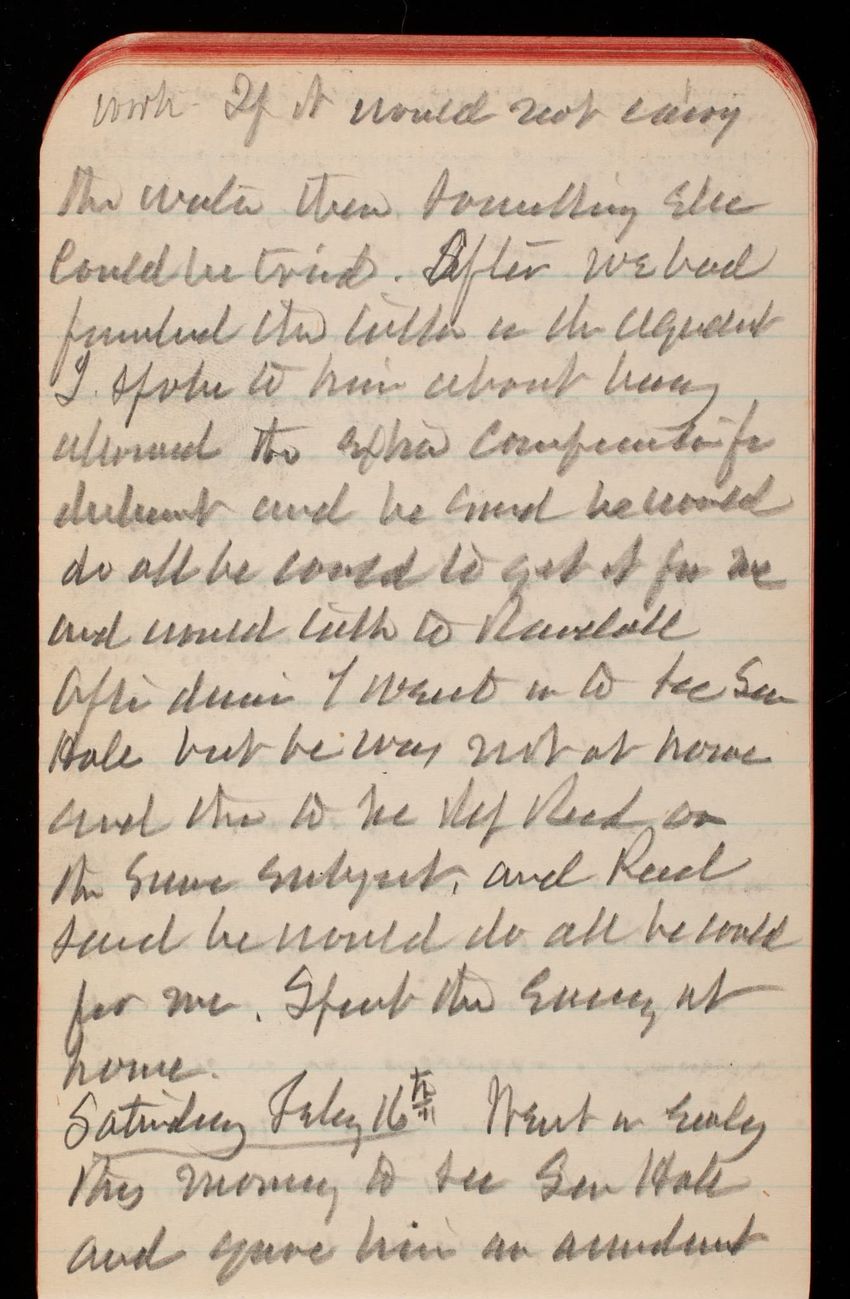 work If it would not carry
the water then something Else
Could be tried. After we had
finished the talk on the aqueduct
I spoke to him about being
allowed the extra compensation for
and he said he would
do all he could to get it for me
and would talk to Randall
After dinner I went in to see Sen
Hale but he was not at home
and then to see Rep Reed on
the same subject, and Reed
said he would do all he could
for me. Spent the Evening at
home.
Saturday Feby 16th Went in Early
this morning to see Sen Hale
and gave him an amendment